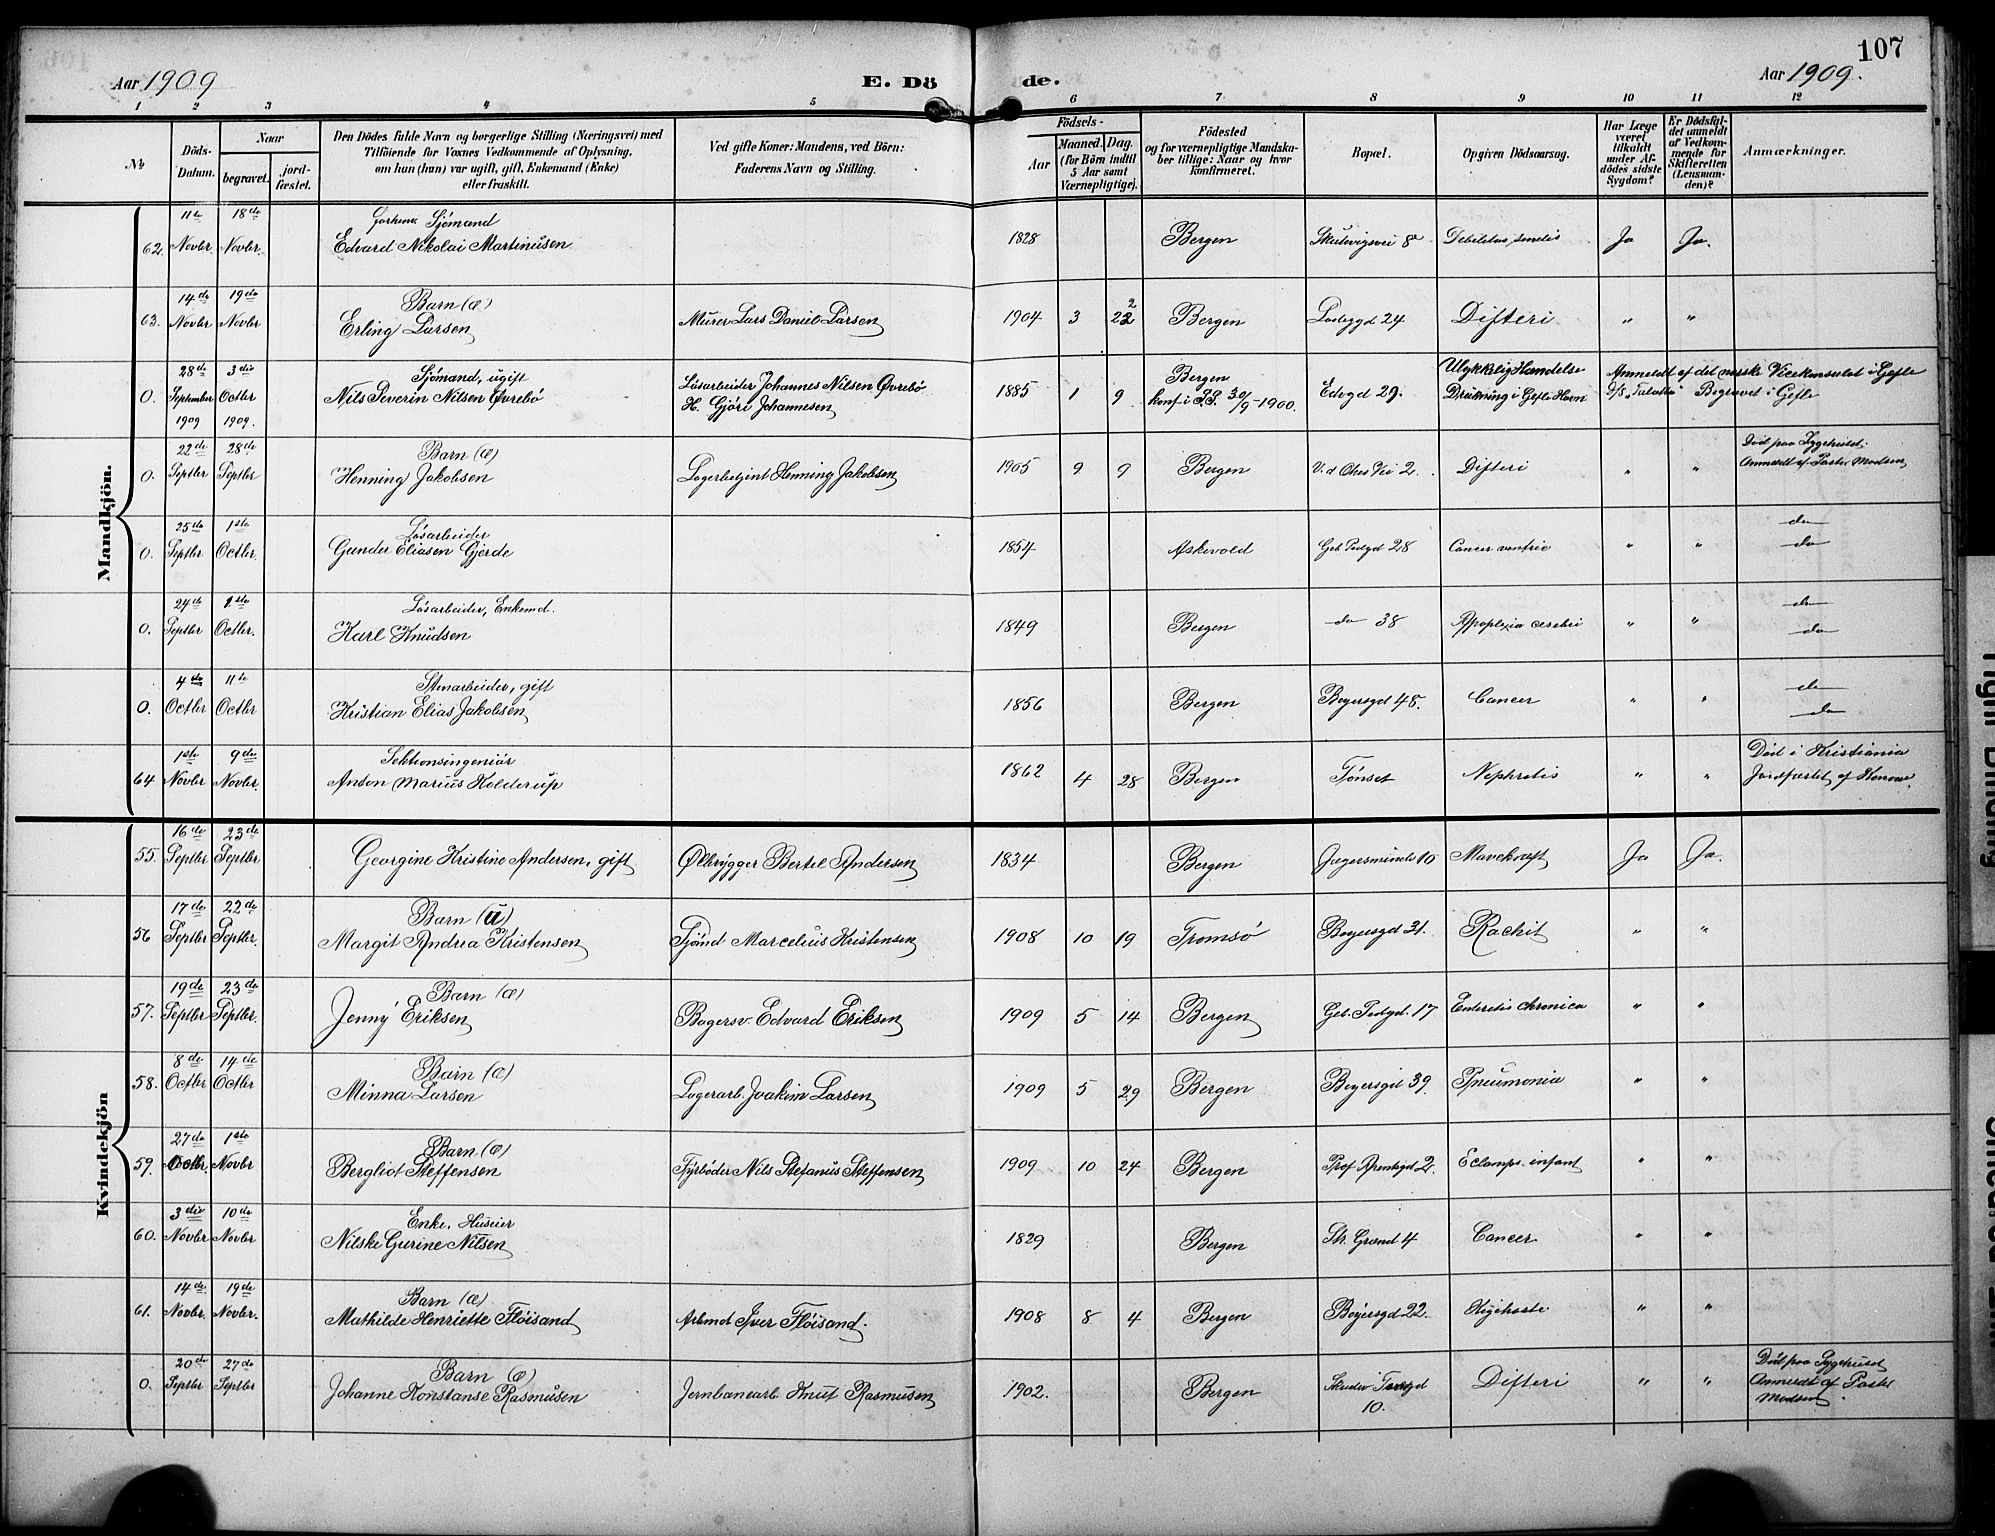 107
Aar 1909
E. Dö
de.
Aar 1909.
1 2 3 4 5 6 7 8 9 10 11 12
№
Döds-
Datum.
Naar
begravet.
jord-
fæstet.
Den Dödes fulde Navn og borgerlige Stilling (Næringsvei) med
Tilföiende for Voxnes Vedkommende af Oplysning,
om han (hun) var ugift, gift, Enkemand (Enke)
eller fraskilt.
Ved gifte Koner: Mandens, ved Börn:
Faderens Navn og Stilling.
Födsels-
Aar
Maaned. Dag.
(for Börn indtil
5 Aar samt
Værnepligtige).
Födested
og for værnepligtige Mandska-
ber tillige: Naar og hvor
konfirmeret.
Bopæl.
Opgiven Dödsaarsag.
Har Læge
været
tilkaldt
under Af-
dödes sidste
Sygdom?
Er Dödsfal-
det anmeldt
af Vedkom-
mende for
Skifteretten
(Lensman-
den)?
Anmærkninger.
Mandkjön.
11te 18de Sjömand
62. Novbr. Novbr. Edvard Nikolai Martinüsen 1828 Bergen Skutevigsvei 8a Debilitas senilis Ja Ja.
14de 19de Barn (æ)
63. Novbr Novbr Erling Larsen Murer Lars Daniel Larsen 1904 3 22 Bergen Ladegd 24 Difteri " "
28de 3die Sjömand, ugift Løsarbeider Johannes Nilsen Øvrebö Bergen Ulykkelig Hændelse Anmeldt af det norske Vicekonsulat i Gefle
0. September Octbr Nils Severin Nilsen Øvrebö H. Gjöri Johannesen 1885 1 9 konf i 30/9-1900. Edvgd 29. Drukning i Gefle Havn Begravet i Gefle
1909 1909.
22de 28de Barn (æ) Död paa Sygehuset.
0. Septbr Septbr Henning Jakobsen Lagerbetjent Henning Jakobsen 1905 9 9 Bergen Difteri " " Anmeldt af Pastor Madsen
25de 1ste Løsarbeider do
0. Septbr Octbr. Gunder Eliasen Gjerde 1854 Askevold Geb Pedgd 28 Cancer ventric " " do
24de 1ste Løsarbeider, Enkemd. do
0. Septbr Octbr. Karl Knüdsen 1849 Bergen do 38 Apoplexia cerebri " " do
4de 11te Stenarbeider, gift do
0. Octbr Octbr Kristian Elias Jakobsen 1856 Bergen Beyersgd 48. Cancer " " do
1ste 9de Sektionsingeniör Död i Kristiania
64 Novbr Novbr. Anton Marius Holderup 1862 4 28 Bergen Tönset Nephritis " " Jordfæstet af
Kvindekjön
16de 23de
55. Septbr Septbr Georgine Kristine Andersen, gift Ølbrygger Bertel Andersen 1834 Bergen Jægersminde 10 Mavekræft Ja Ja.
17de 22de Barn (ü)
56 Septbr Septbr. Margit Andrea Kristensen Sjömd Marcelius Kristensen 1908 10 19 Tromsö Beyersgd 31. Rachit " "
19de 23de Barn (æ)
57. Septbr Septbr. Jenny Eriksen Bagersv. Edvard Eriksen 1909 5 14 Bergen Geb. Pedgd. 17 Enteritis chronica " "
8de 14de Barn (æ)
58. Octbr Octbr Minna Larsen Lagerarb. Joakim Larsen 1909 5 29 Bergen Beyersgd 39. Pneumonia " "
27de 1ste Barn (æ)
59. Octbr. Novbr Bergliot Steffensen Fyrböder Nils Stefanüs Steffensen 1909 10 24 Bergen Prof. Arentzgd 2. Eclamps. infant " "
3die 10de Enke, Huseier
60. Novbr Novbr Nilske Gurine Nilsen 1829 Bergen St. Grønd 4 Cancer " "
14de 19de Barn (æ)
61. Novbr. Novbr. Mathilde Henriette Flöisand Arbmd Iver Flöisand. 1908 8 4 Bergen Beyersgd 22. Kighoste " "
20de 27de Barn (æ) Död paa Sygehuset
0. Septbr Septbr Johanne Konstanse Rasmüsen Jernbanearb. Knut Rasmüsen 1902. Bergen Difteri " " Anmeldt af Pastor
10. Madsen